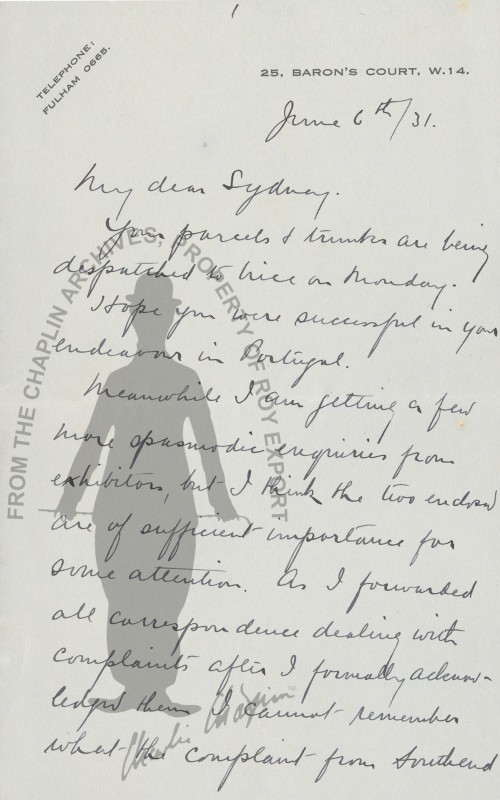 1
TELEPHONE:
FULHAM 0665.
25, BARON'S COURT, W.14.
June 6th/31.
My dear Sydney.
Your parcels & trunks are being
despatched to Nice on Monday.
I hope you were successful in your
endeavour in Portugal.
Meanwhile I am getting a few
more spasmodic enquiries from
exhibitors, but I think the two enclosed
are of sufficient importance for
some attention. As I forwarded
all correspondence dealing with
complaints after I formally acknow-
ledged them I cannot remember
what the complaint from Southend
FROM THE CHAPLIN ARCHIVES, PROPERTY OF ROY EXPORT
Charlie Chaplin